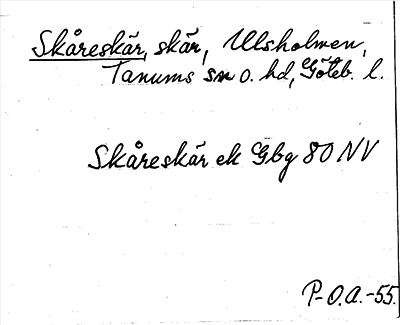 Skåreskär, skär, Ulsholmen,
Tanums sn o. hd, Göteb. l.
Skåreskär ek Gbg 80 NV
P-O.A.-55.